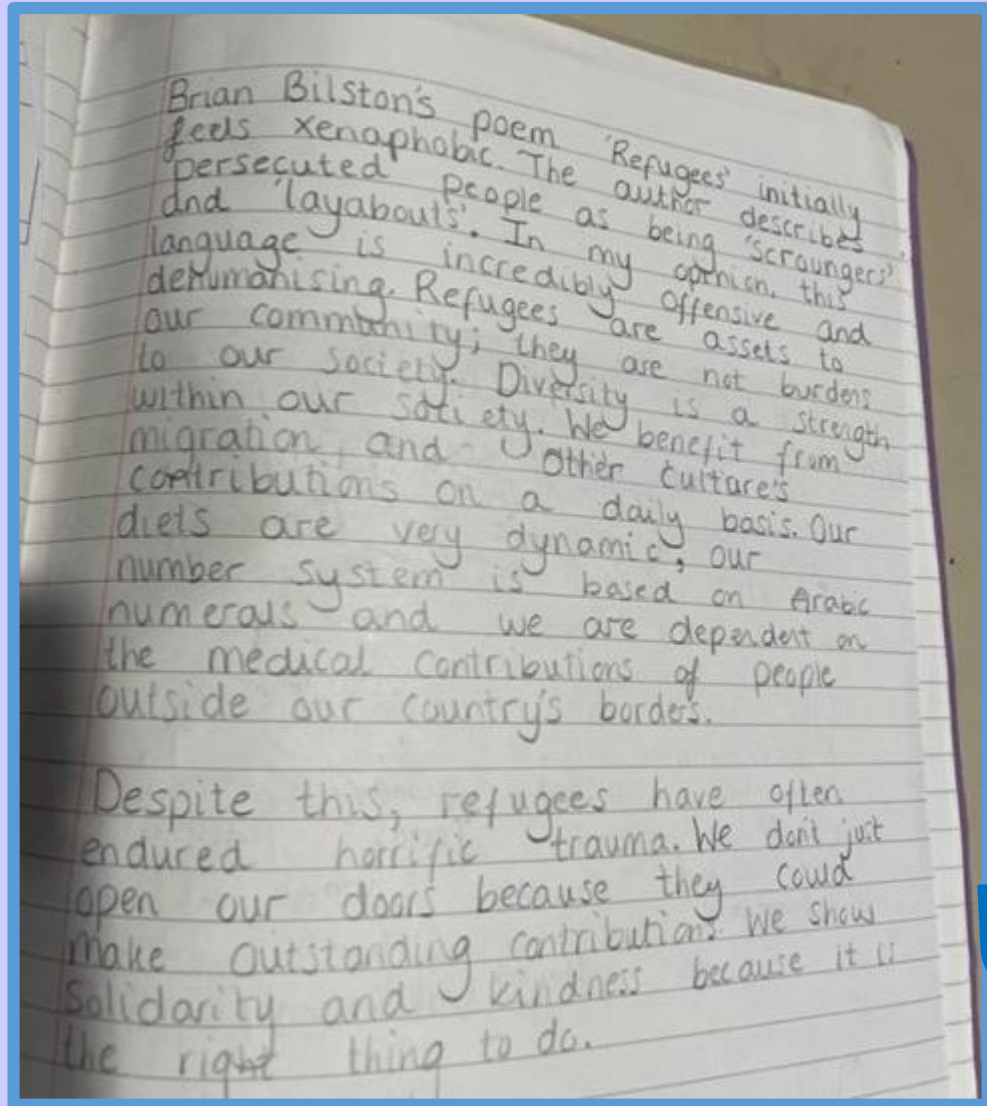 Brian Bilston's poem 'Refugees' initially
feels xenaphobic. The author describes
persecuted people as being 'scroungers'
and 'layabouts'. In my opinion, this
language is incredibly offensive and
dehumanising. Refugees are assets to
our community; they are not burdens
to our society. Diversity is a strength
within our society. We benefit from
migration, and other culture's
contributions on a daily basis. Our
diets are very dynamic, our
number system is based on Arabic
numerals and we are dependent on
the medical contributions of people
outside our country's borders.
Despite this, refugees have often
endured horrific trauma. We don't just
open our doors because they could
make outstanding contributions. We show
solidarity and kindness because it is
the right thing to do.